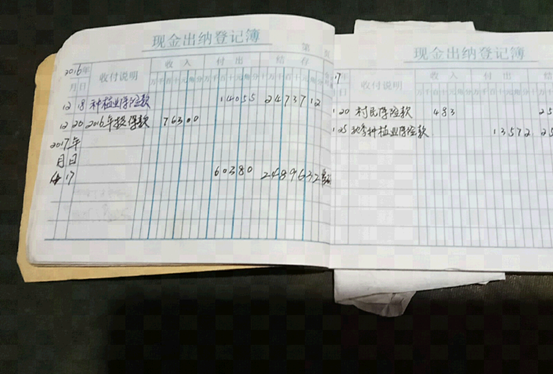 现金出纳登记簿
2016年 收付说明 收入 付出 结存
月 日
12 8 种植业保险款 14055 2473712
12 20 2016年投保款 76300
2017年
月日
4 17 60380 2489632
现金出纳登记簿
收付说明 收入 付出 结
1 20 村民保险款 483 25
1 25 种植业保险款 13572 25